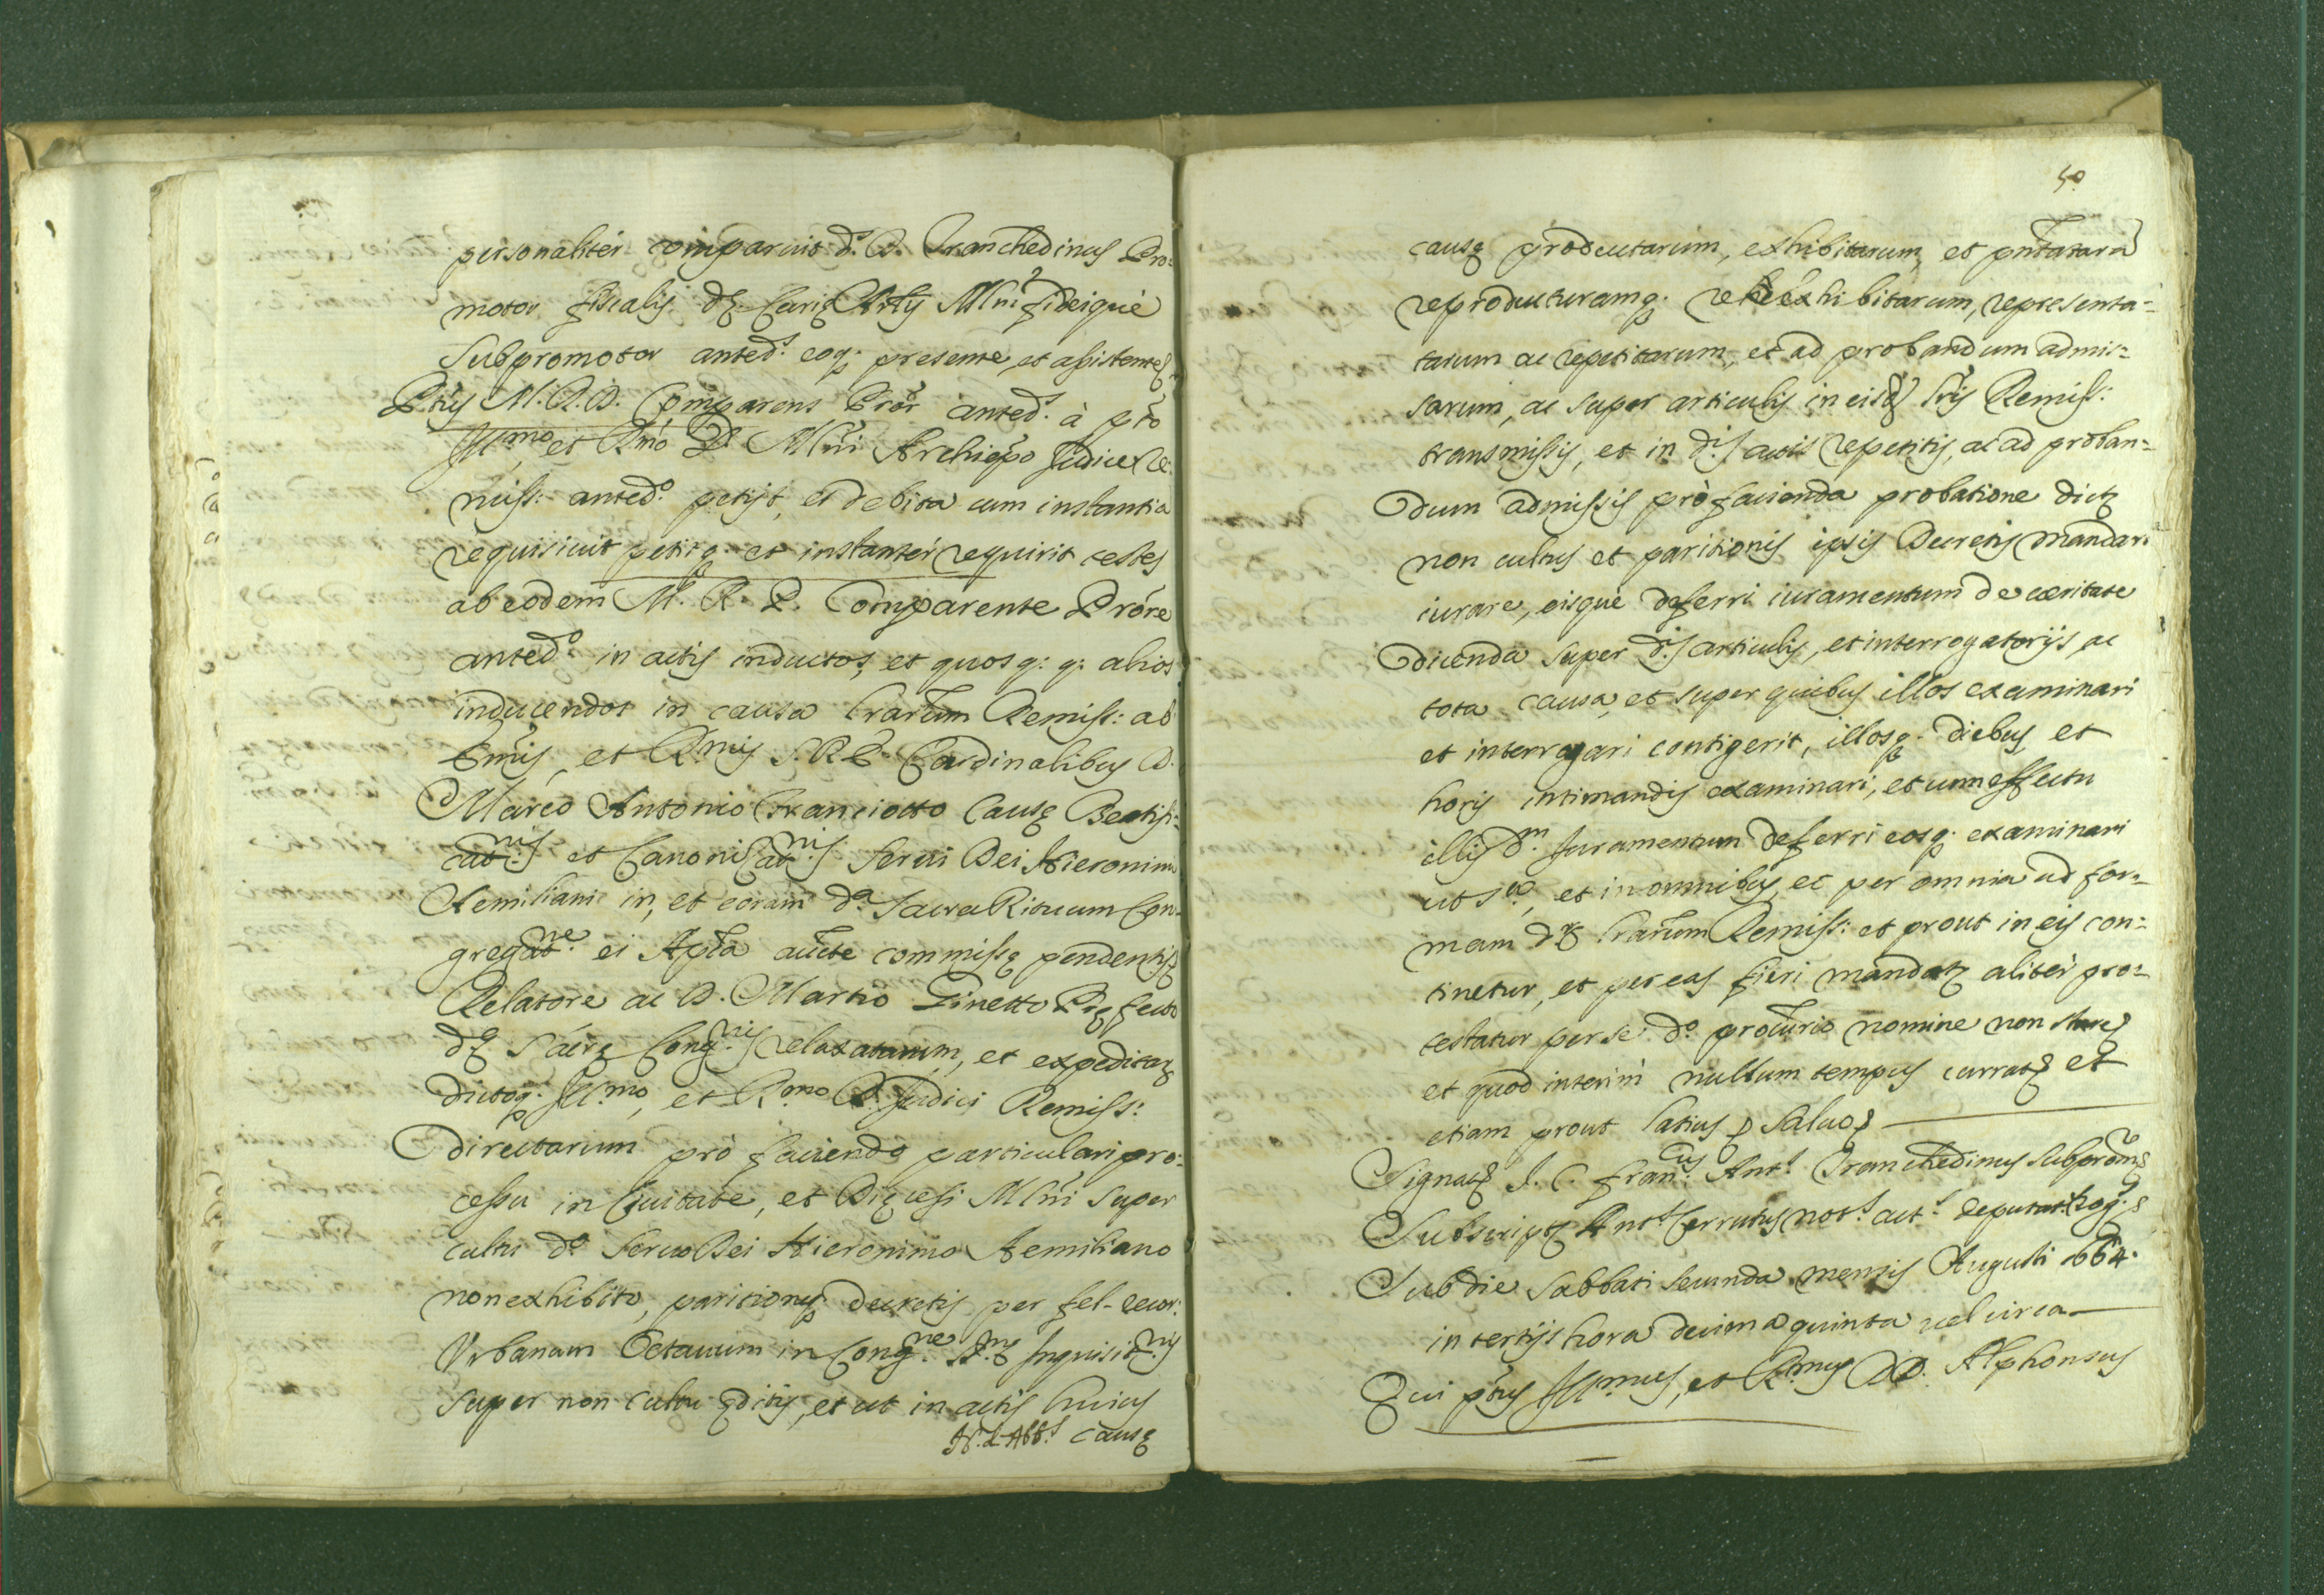 personaliter comparuit d.s D. Tranchedinus Pro:
motor fiscalis dę Curię Archiẽplis Mlni fideique
subpromotor anted.s eoq; presente, et assistente
Ptus M. R. D. Comparens Prõr anted.s à pto
Ill.mo et Rmo D. Mlni Archiẽpo Judice Re:
miss: anted.o petijt, et debita cum instantia
requisiuit petitq; et instanter requirit testes
ab eodem M. R. D. Comparente Prõre
anted.o in actis inductos, et quosq; q; alios
inducendos in causa lrarum Remiss: ab
Emis, et R.mis S. R. E. Cardinalibus D.
Marco Antonio Franciotto Causę Beatifi:
cat.nis et Canonizat.nis Serui Dei Hieronimi
Aemiliani in, et coram d.a Sacra Rituum Con-
gregat.ne ei Aplĩca aucte commissę pendentis
Relatore ac D. Martio Ginetto Pręfecto
dę Sacrę Cong.nis relaxatarum, et expeditarũ
dictoq; Ill.mo, et R.mo D. Judici Remiss:
directarum pro faciendo particulari pro:
cessu in Ciuitate, et Dięcesi Mlni super
cultu d.o Seruo Dei Hieronimo Aemiliano
non exhibito, paritionisq; decretis per fel- recor:
Vrbanum Octauum in Cong.ne S.mę Inquisit.nis
super non cultu ęditis, et ut in actis huius
causę
50
causę productarum, exhibitarum, et pntatarũ
reproductarumq; reexhibitarum, representa:
tarum ac repetitarum, et ad probandum admis:
sarum, ac super articulis in eisd. lris Remiss:
transmissis, et in d.is actis repetitis, ac ad proban:
dum admissis pro facienda probatione dictę
non cultus et paritionis ipsis Decretis mandari
iurare, eisque deferri iuramentum de ueritate
dicenda super d.is articulis, et interrogatorijs, ac
tota causa, et super quibus illos examinari
et interrogari contigerit, illosq; diebus et
horis intimandis examinari, et cum effectu
illis d.m Juramentum deferri eosq; examinari
ut s.a, et in omnibus et per omnia ad for:
mam d. lrarum Remiss: et prout in eis con:
tinetur, et per eas fieri mandatur aliter pro:
testatur per se d.o procurio nomine non stare
et quod interim nullum tempus currat et
etiam prout latius p saluo
Signat. J. C. Fran.cus Ant.s Tranchedinus Subprom.
Subscript. Ant.s Cerrutus not.s act.s deputat.
Sub die Sabbati secunda mensis Augusti 1664.
in tertijs hora decima quinta uel circa
Qui ptus Ill.mus, et R.mus D.D. Alphonsus